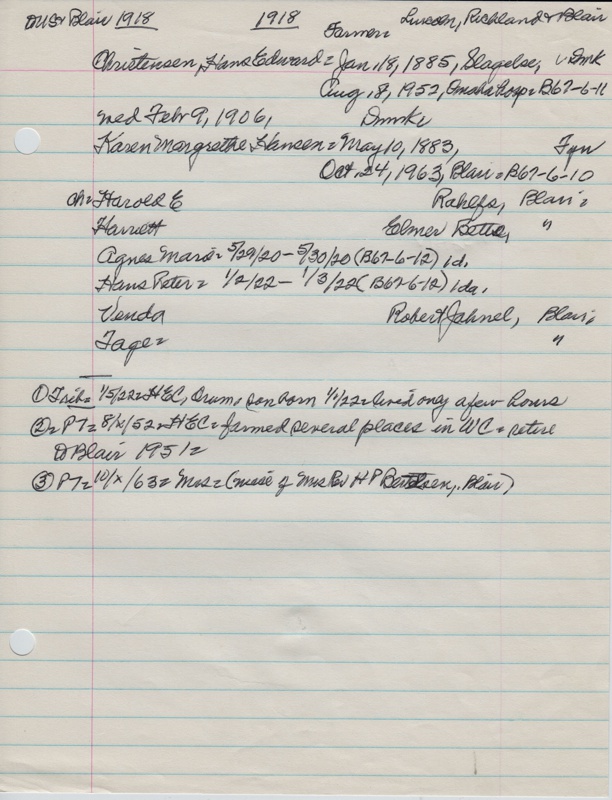 DUS & Blair 1918 1918 Farmer = Lincoln, Richland & Blair
Christensen, Hans Edward = Jan 18, 1885, Slagelse, Dmk
Aug 8, 1952, Omaha Hosp = B67-6-11
wed Feb 9, 1906, Dmk
Karen Margrethe Hansen = May 10, 1883, Fyn
Oct 24, 1963, Blair = B67-6-10
ch = Harold E Rahlfs, Blair =
Harriett Elmer Betts, "
Agnes Marie = 5/29/20 - 5/30/20 (B67-6-12) id.
Hans Peter = 1/2/22 - 1/3/22 (B67-6-12) ida.
Venda Robert Jahnel, Blair =
Tage = "
① Trib = 1/5/22 = HEC, Orum, son born 1/2/22 = lived only a few hours
② = PT = 8/x/52 = HEC = farmed several places in WC = retire
D Blair 1951 =
③ PT = 10/x/63 = Mrs = (niece of Mrs Rev H P Bertelsen, Blair)